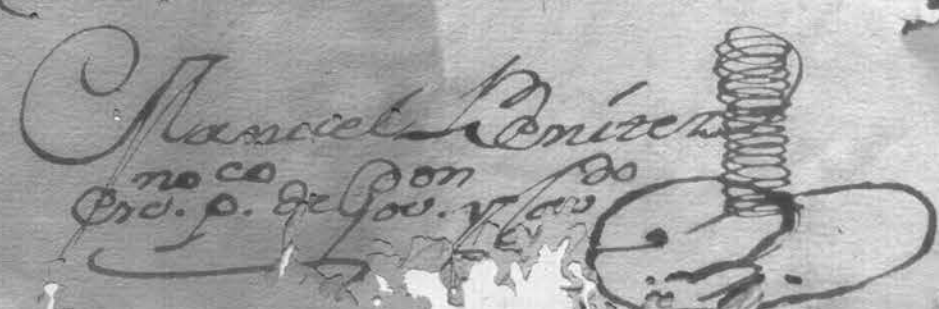 Manuel Benítez
Esno. pco. de Govon. y Cavdo